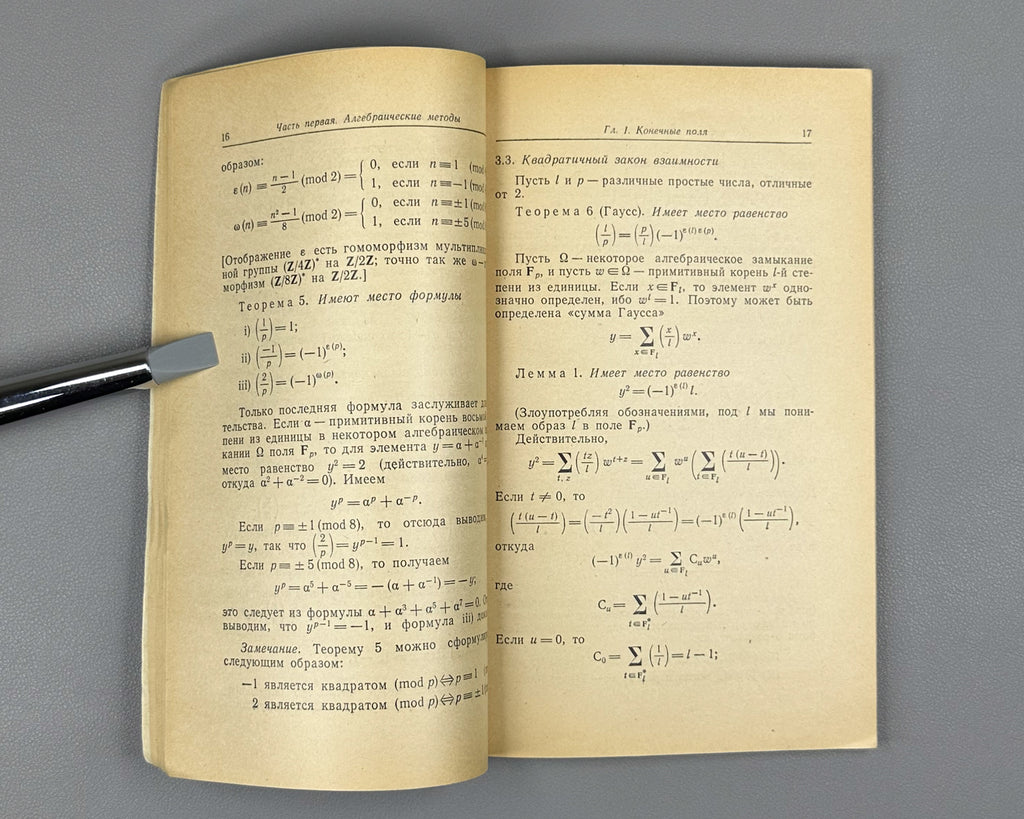 16 Часть первая. Алгебраические методы
образом:
ε(n) ≡ (n−1)/2 (mod 2) = { 0, если n ≡ 1 (mod
1, если n ≡ −1 (mod
ω(n) ≡ (n²−1)/8 (mod 2) = { 0, если n ≡ ±1 (mod
1, если n ≡ ±5 (mod
[Отображение ε есть гомоморфизм
ной группы (Z/4Z)* на Z/2Z; точно так же ω —
морфизм (Z/8Z)* на Z/2Z.]
Теорема 5. Имеют место формулы
i) (1/p) = 1;
ii) (−1/p) = (−1)^ε(p);
iii) (2/p) = (−1)^ω(p).
Только последняя формула заслуживает
тельства. Если α — примитивный корень
пени из единицы в некотором алгебраическом
кании Ω поля F_p, то для элемента y = α + α⁻¹
место равенство y² = 2 (действительно,
откуда α² + α⁻² = 0). Имеем
y^p = α^p + α^−p.
Если p ≡ ±1 (mod 8), то отсюда
y^p = y, так что (2/p) = y^(p−1) = 1.
Если p ≡ ±5 (mod 8), то получаем
y^p = α⁵ + α⁻⁵ = −(α + α⁻¹) = −y;
это следует из формулы α + α³ + α⁵ + α⁷ = 0.
выводим, что y^(p−1) = −1, и формула iii)
Замечание. Теорему 5 можно
следующим образом:
−1 является квадратом (mod p) ⇔ p ≡ 1
2 является квадратом (mod p) ⇔ p ≡ ±1
Гл. I. Конечные поля 17
3.3. Квадратичный закон взаимности
Пусть l и p — различные простые числа, отличные
от 2.
Теорема 6 (Гаусс). Имеет место равенство
(l/p) = (p/l) (−1)^ε(l)ε(p).
Пусть Ω — некоторое алгебраическое замыкание
поля F_p, и пусть w ∈ Ω — примитивный корень l-й сте-
пени из единицы. Если x ∈ F_l, то элемент w^x одно-
значно определен, ибо w^l = 1. Поэтому может быть
определена «сумма Гаусса»
y = ∑_{x∈F_l} (x/l) w^x.
Лемма 1. Имеет место равенство
y² = (−1)^ε(l) l.
(Злоупотребляя обозначениями, под l мы пони-
маем образ l в поле F_p.)
Действительно,
y² = ∑_{t, z} (tz/l) w^(t+z) = ∑_{u∈F_l} w^u (∑_{t∈F_l} (t(u−t)/l)).
Если t ≠ 0, то
(t(u−t)/l) = (−t²/l) ((1−ut⁻¹)/l) = (−1)^ε(l) ((1−ut⁻¹)/l),
откуда
(−1)^ε(l) y² = ∑_{u∈F_l} C_u w^u,
где
C_u = ∑_{t∈F_l*} ((1−ut⁻¹)/l).
Если u = 0, то
C_0 = ∑_{t∈F_l*} (1/l) = l − 1;